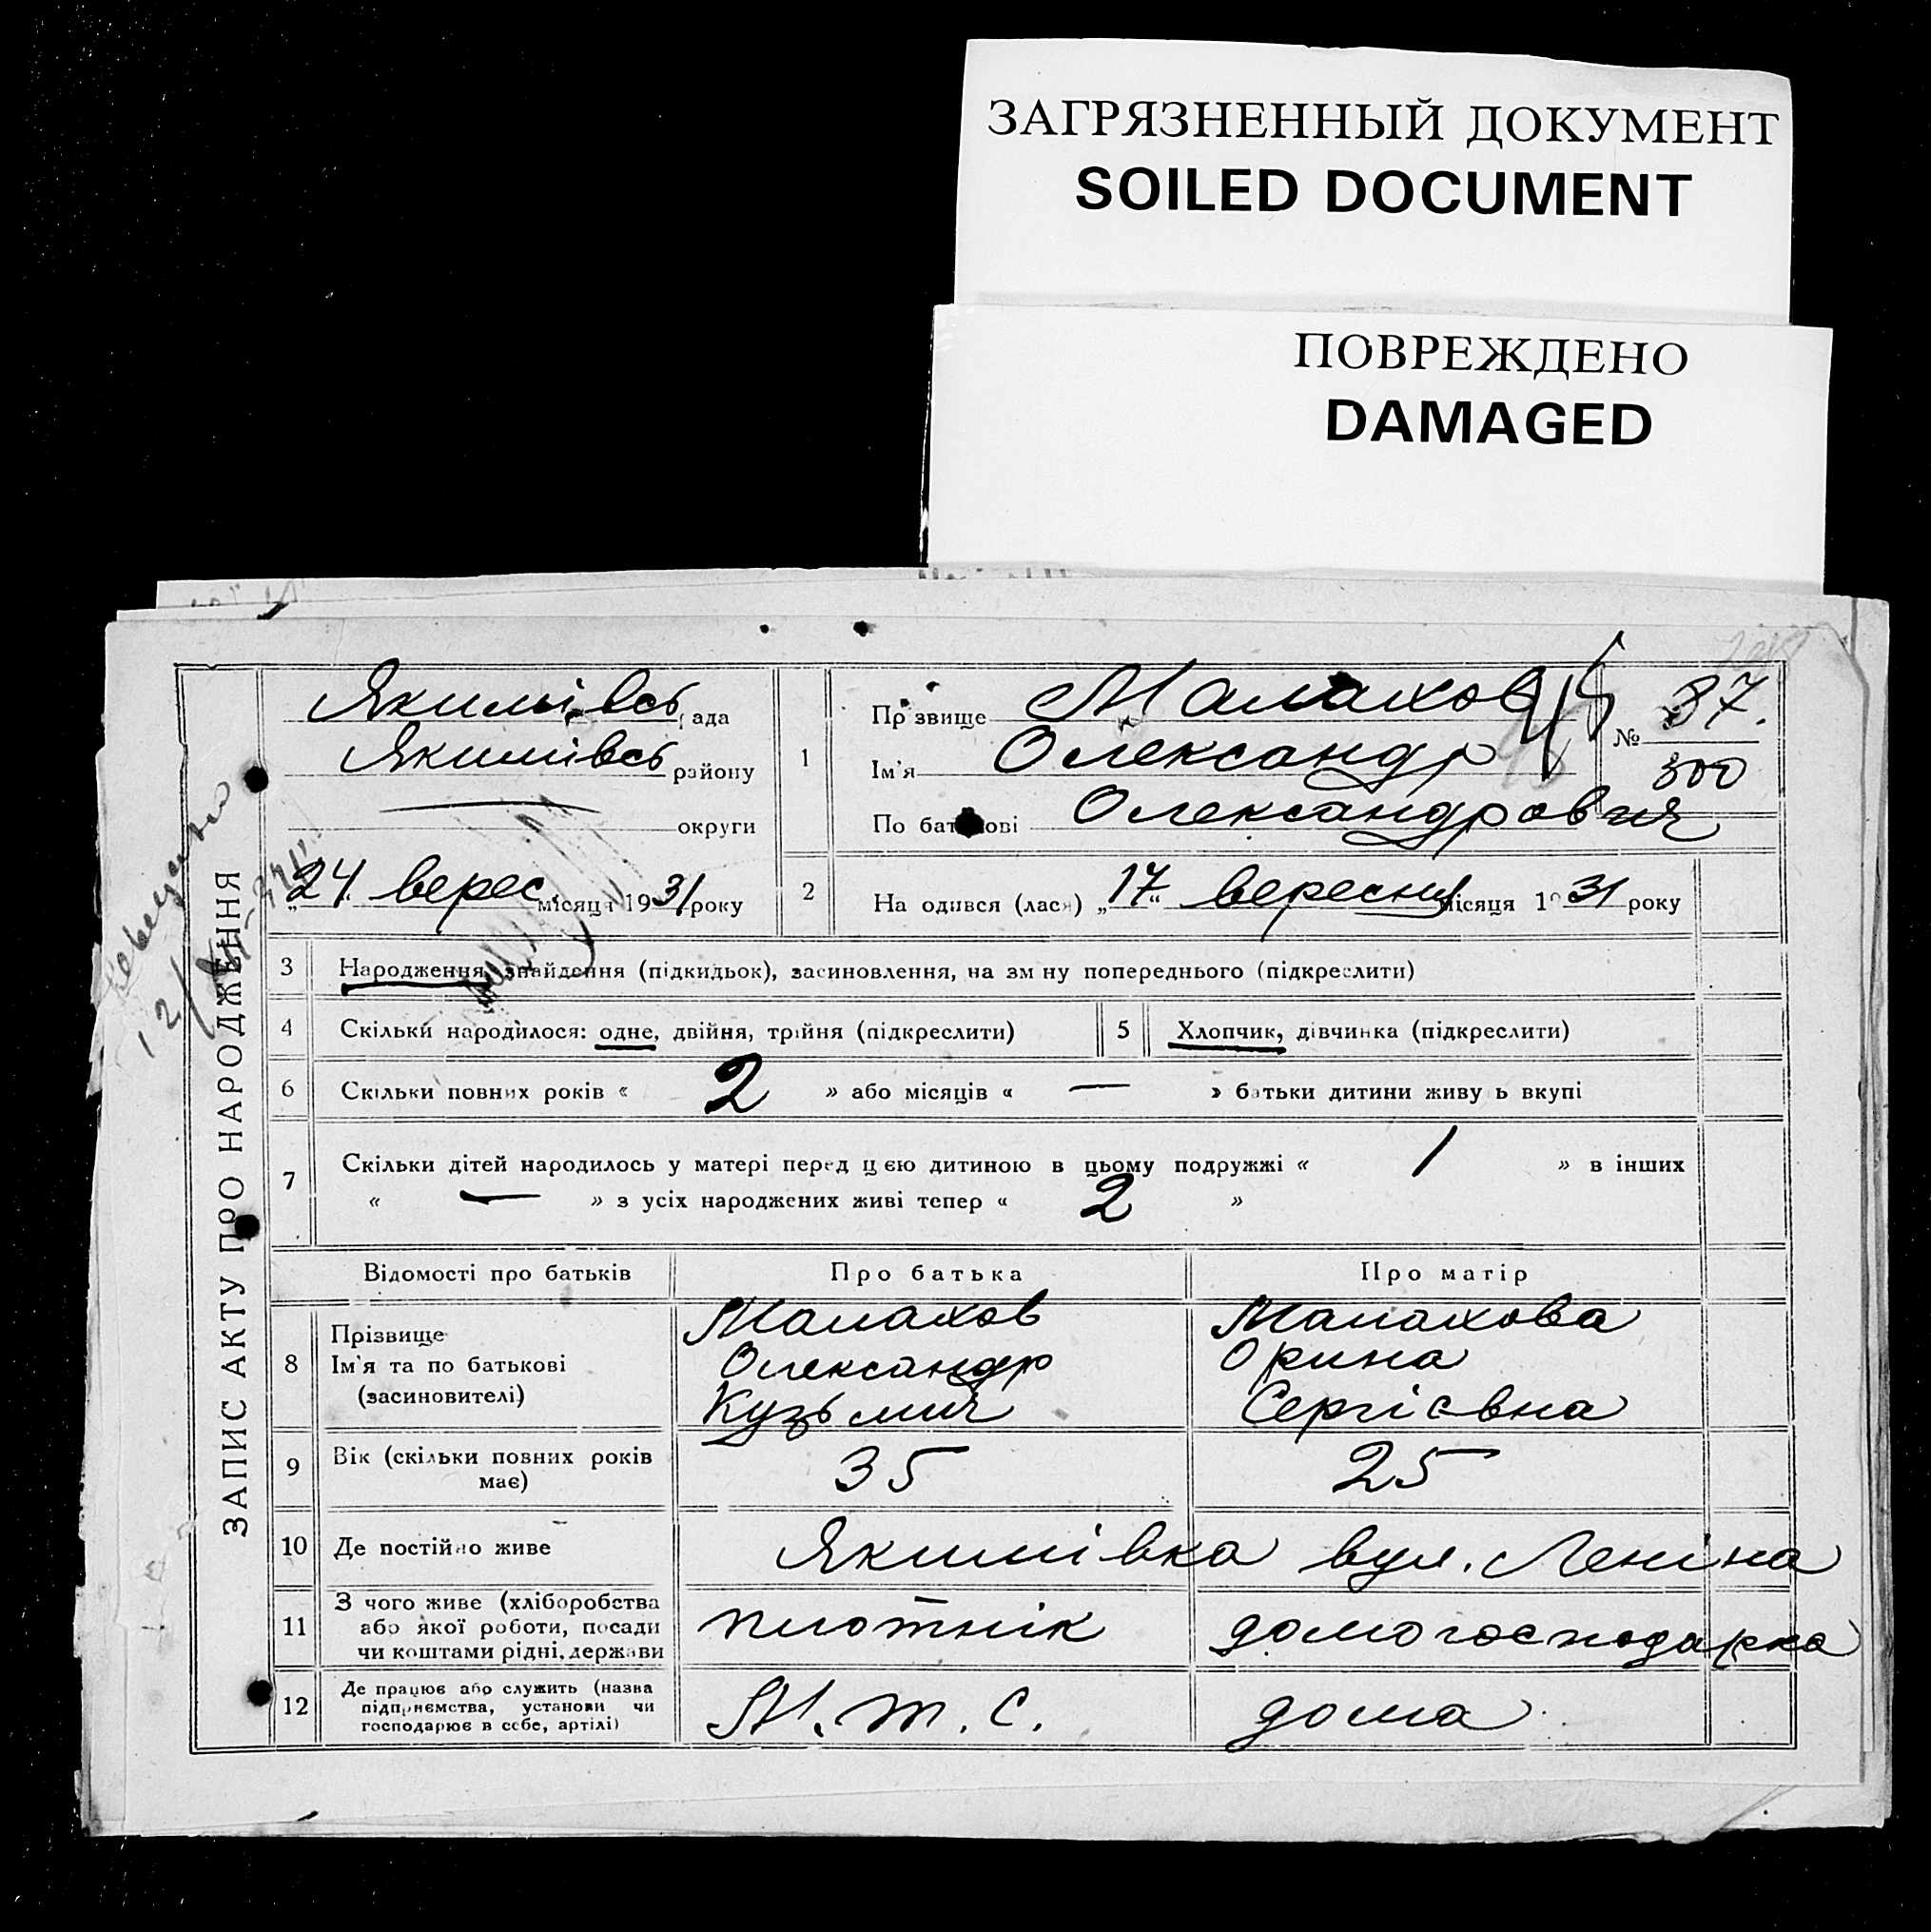 ЗАГРЯЗНЕННЫЙ ДОКУМЕНТ
SOILED DOCUMENT
ПОВРЕЖДЕНО
DAMAGED
ЗАПИС АКТУ ПРО НАРОДЖЕННЯ
Якимівсь рада
Якимівсь району
— округи
„24 верес місяця 1931 року
1 Прізвище Малахов
Ім'я Олександр
По батькові Олександрович
№ 37.
300
2 На одився (лася) „17“ вересня місяця 1931 року
3 Народження, знайдення (підкидьок), засиновлення, на зміну попереднього (підкреслити)
4 Скільки народилося: одне, двійня, трійня (підкреслити)
5 Хлопчик, дівчинка (підкреслити)
6 Скільки повних років « 2 » або місяців « — » батьки дитини живу ь вкупі
7 Скільки дітей народилось у матері перед цією дитиною в цьому подружжі « 1 » в інших
« — » з усіх народжених живі тепер « 2 »
Відомості про батьків Про батька Про матір
8 Прізвище Малахов Малахова
Ім'я та по батькові Олександр Орина
(засиновителі) Кузьмич Сергієвна
9 Вік (скільки повних років має) 35 25
10 Де постійно живе Якимівка вул. Леніна
11 З чого живе (хліборобства
або якої роботи, посади плотнік домогосподарка
чи коштами рідні, держави
12 Де працює або служить (назва
підприємства, установи чи М.т.с. дома
господарює в себе, артілі)